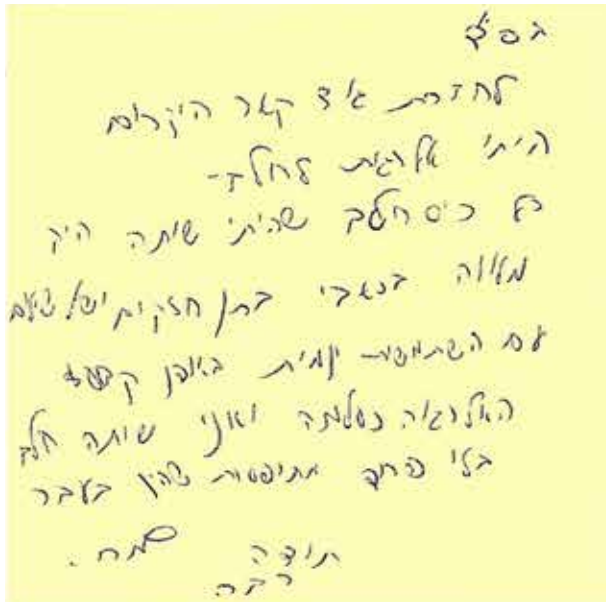 בס"ד
לחברת גוד קאר היקרים
הייתי אלרגית לחלב -
כל כוס חלב שהייתי שותה היה
מלווה בכאבי בטן חזקים ושלשולים
עם השתמשות יומית באופן קבוע
האלרגיה נעלמה ואני שותה חלב
בלי פחד מתופעות שהיו בעבר
תודה
רבה